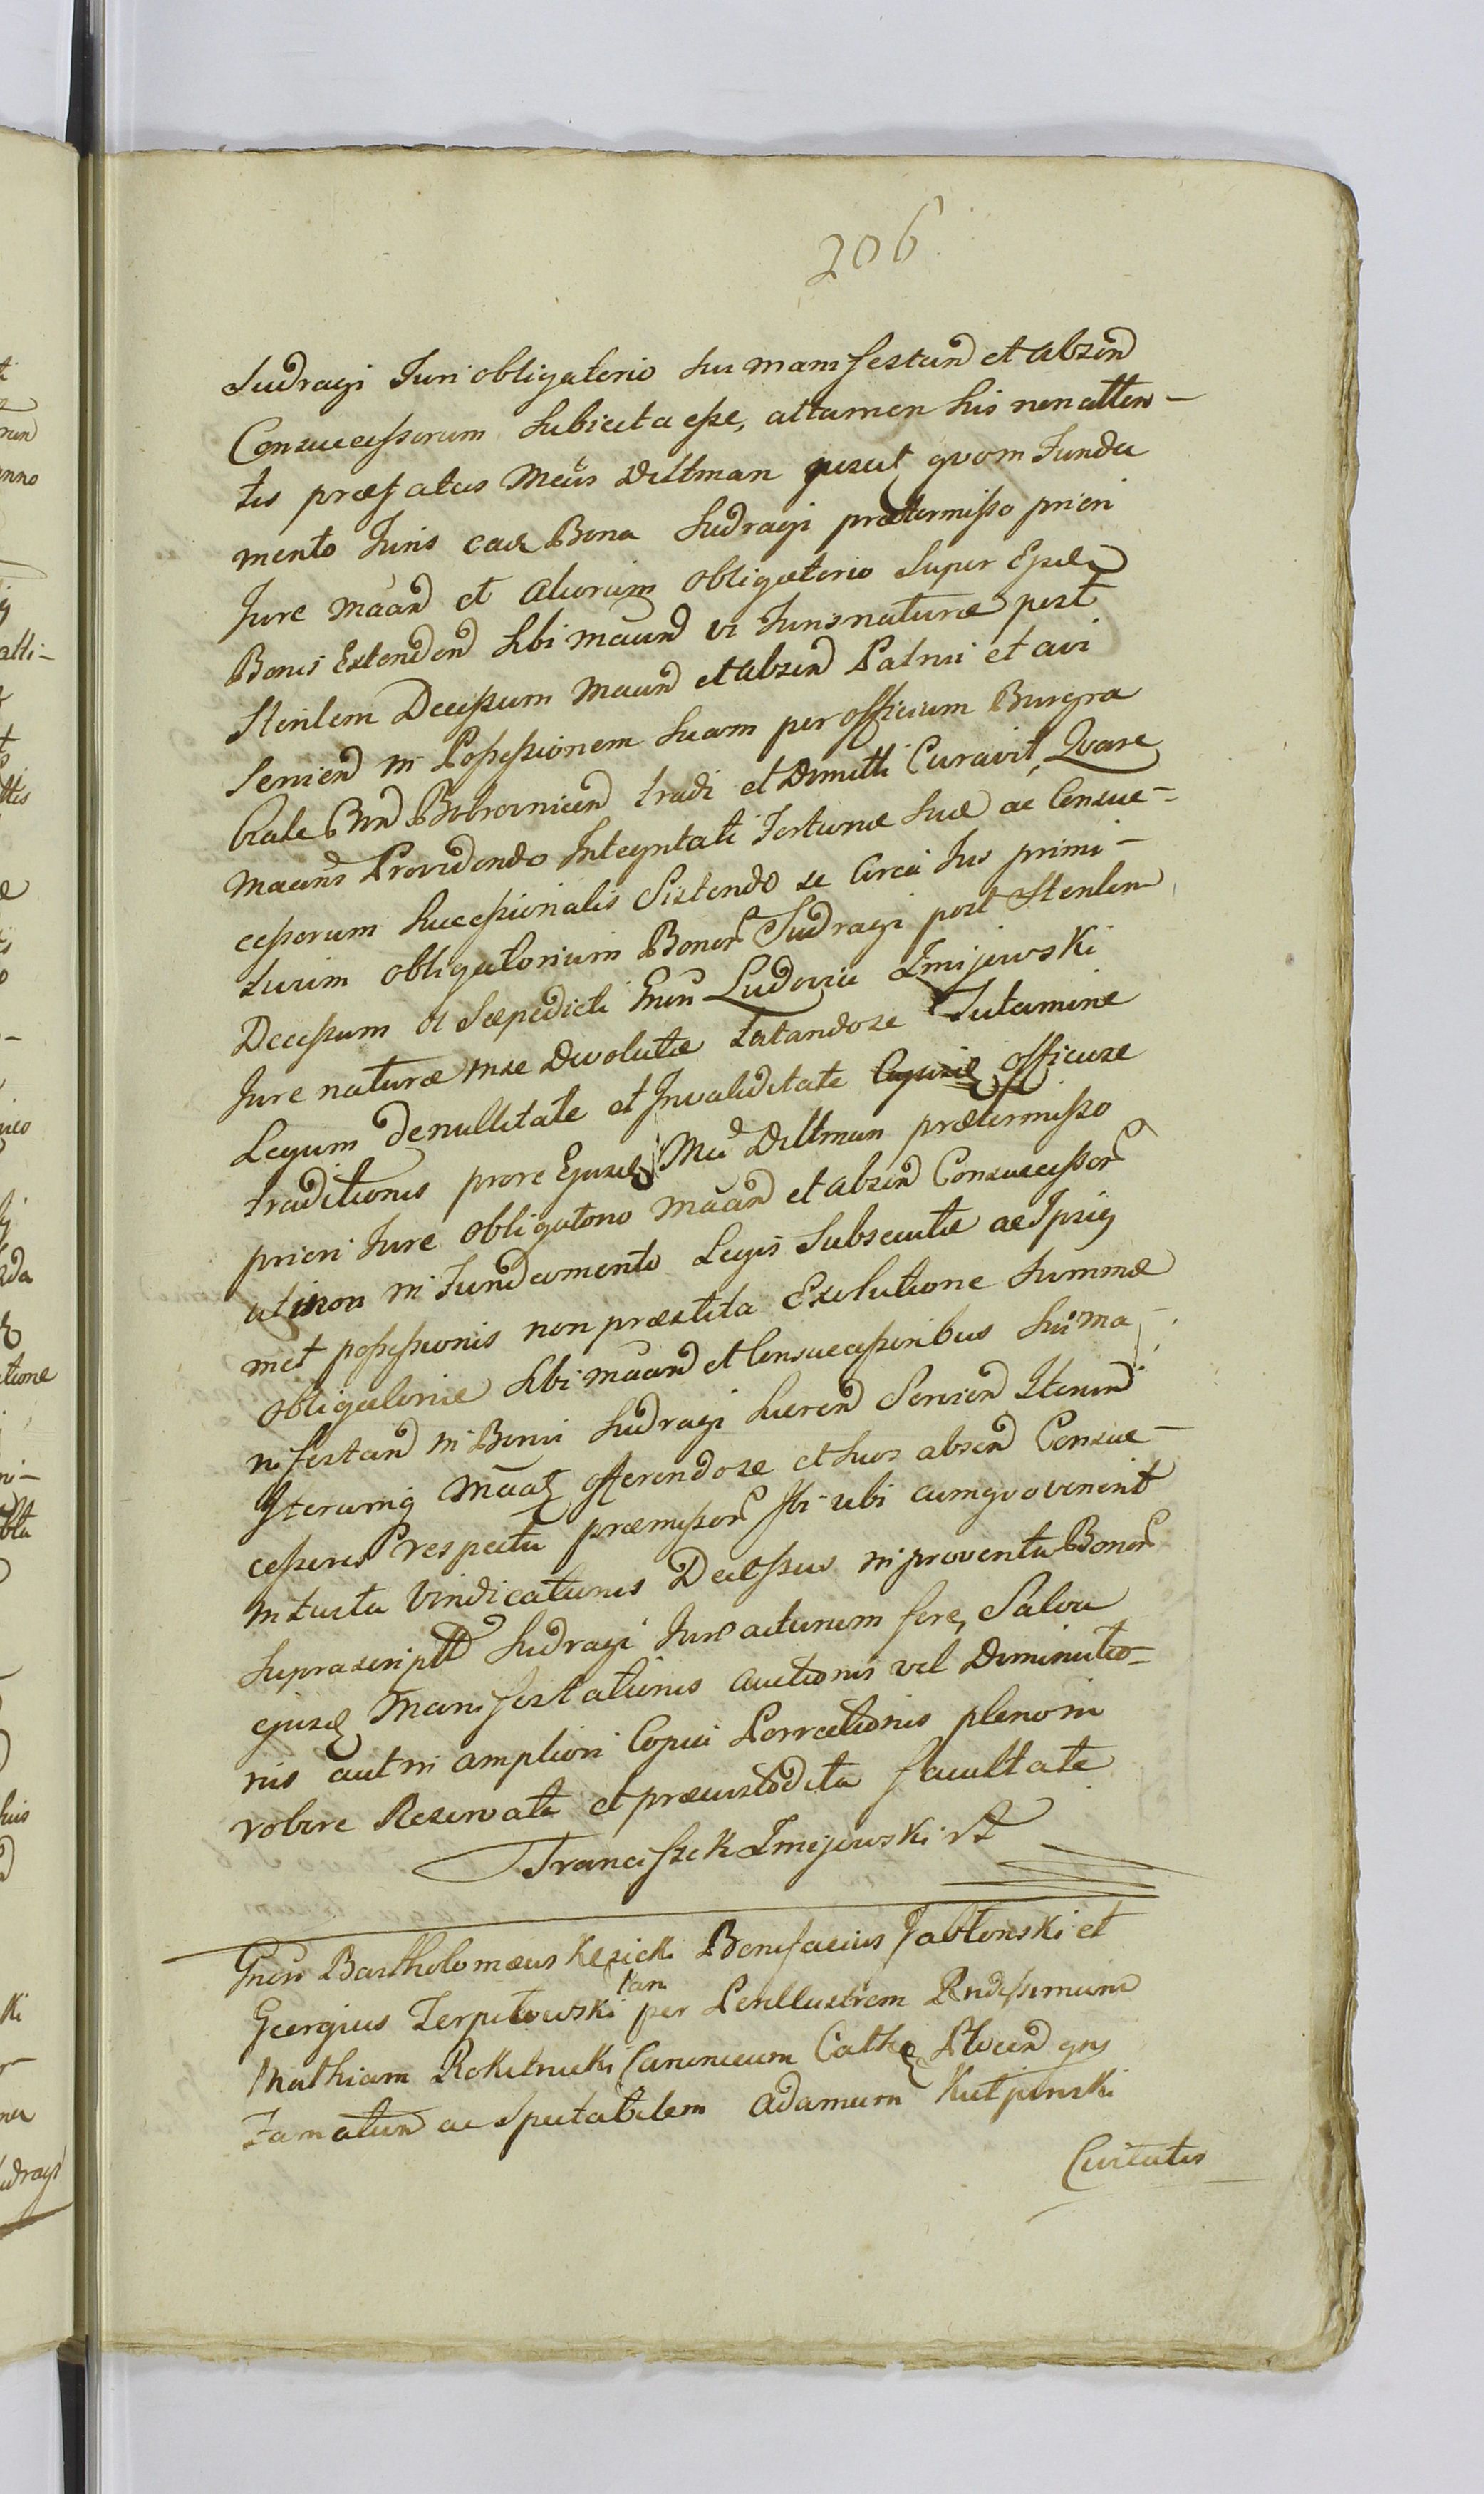 206
Sudragi Juri obligatorio sui manifestan et absen
Consuccessorum Subiecta esse, attamen his non atten-
tis præfatus Mcus Dittman quovom Funda
mento Juris eade Bona Sudragi prætermisso priori
Jure maan et aliorum obligatorio super Eisde
Bonis Extenden sibi maan vi Juris naturæ post
Sterilem Decessum maan et absen Patrui et avi
Servien in Possessionem suam per officium Burgra
biale Bobrovnicen tradi et Dimitti Curavit, Qvare
maans Providendo Integritati Fortunæ suæ ac Consuc-
cessorum Successionalis Sistendo se Circa Jus primi-
tivum obligatorium Bonor Sudragi post Sterilem
Decessum ol Sæpedicti Gnsi Ludovici Zmijewski
Jure naturæ in se Devolutæ Tutandose Tutamine
Legum de nullitate et Invaliditate officiose
traditionis pro re Ejusde Mci Dittman prætermisso
priori Jure obligatorio maan et absen Consuccessor
uti non in Fundamento Legis Subsecutæ ac Ipsius
met possessionis non præstita Exolutione Summæ
obligatoriæ sibi maan et Consuccessoribus sui ma-
nifestan in Bonis Sudragi hæren Servien Iterum
Iterumq maat offerendose et suos absen Consuc-
cessores respectu præmissor sibi ubi cumqvo venerit
intuitu Vindicationis Decessus in proventu Bonor
Suprascriptt Sudragi Jure acturum fore, Salva
ejusde Manifestationis auctionis vel Diminutio-
nis aut in ampliori Copia Porrectionis pleno in
robore Reservata et præcustodita facultate
Franciszek Zmijewski
Gnsi Bartholomæus Kesicki Bonifacius Jabłonski et
Georgius Terpiłowski tam per Perillustrem Rndissimum
Mathiam Rokitnicki Canonicum Cathe Plocen qm
Famatum ac Spectabilem Adamum
Civitatis